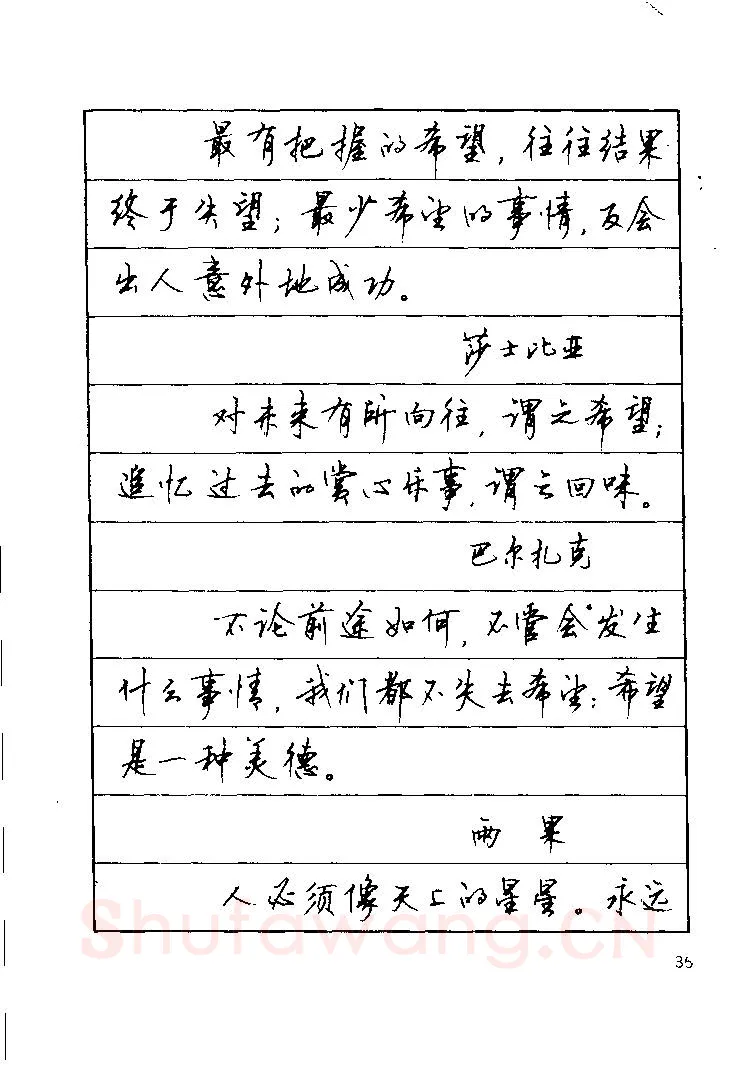 最有把握的希望，往往结果
终于失望；最少希望的事情，反会
出人意外地成功。
莎士比亚
对未来有所向往，谓之希望；
追忆过去的赏心乐事，谓之回味。
巴尔扎克
不论前途如何，不管会发生
什么事情，我们都不失去希望：希望
是一种美德。
雨果
人必须像天上的星星。永远
Shufawang.CN
35